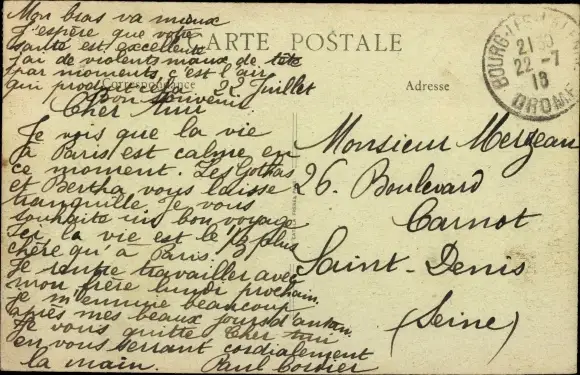 Mon bras va mieux
J'espère que votre
santé est excellente
j'ai de violents maux de tête
par moments, c'est l'air
qui produit cela
Bon souvenir
CARTE POSTALE
Correspondance
Adresse
BOURG-LES-VALENCE
21
22-7
18
DROME
22 Juillet
Cher Ami
Je vois que la vie
à Paris est calme en
ce moment. Les Gothas
et Bertha vous laisse
tranquille. Je vous
souhaite un bon voyage
Ici la vie est le plus
chère qu'à Paris.
Je rentre travailler avec
mon frère lundi prochain.
je m'ennuie beaucoup
après mes beaux jours d'antan.
Je vous quitte Cher
en vous serrant cordialement
la main. Paul Cordier
Monsieur Mergeau
26. Boulevard
Carnot
Saint-Denis
(Seine)